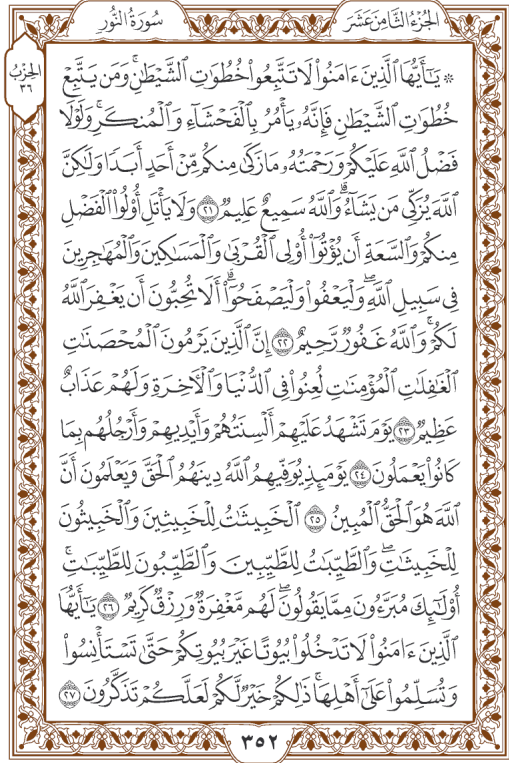 الجُزْءُ الثَّامِنَ عَشَرَ
سُورَةُ النُّورِ
الحِزْبُ
٣٦
۞ يَٰٓأَيُّهَا ٱلَّذِينَ ءَامَنُوا۟ لَا تَتَّبِعُوا۟ خُطُوَٰتِ ٱلشَّيْطَٰنِ ۚ وَمَن يَتَّبِعْ
خُطُوَٰتِ ٱلشَّيْطَٰنِ فَإِنَّهُۥ يَأْمُرُ بِٱلْفَحْشَآءِ وَٱلْمُنكَرِ ۚ وَلَوْلَا
فَضْلُ ٱللَّهِ عَلَيْكُمْ وَرَحْمَتُهُۥ مَا زَكَىٰ مِنكُم مِّنْ أَحَدٍ أَبَدًا وَلَٰكِنَّ
ٱللَّهَ يُزَكِّى مَن يَشَآءُ ۗ وَٱللَّهُ سَمِيعٌ عَلِيمٌ ٢١ وَلَا يَأْتَلِ أُو۟لُوا۟ ٱلْفَضْلِ
مِنكُمْ وَٱلسَّعَةِ أَن يُؤْتُوٓا۟ أُو۟لِى ٱلْقُرْبَىٰ وَٱلْمَسَٰكِينَ وَٱلْمُهَٰجِرِينَ
فِى سَبِيلِ ٱللَّهِ ۖ وَلْيَعْفُوا۟ وَلْيَصْفَحُوٓا۟ ۗ أَلَا تُحِبُّونَ أَن يَغْفِرَ ٱللَّهُ
لَكُمْ ۚ وَٱللَّهُ غَفُورٌ رَّحِيمٌ ٢٢ إِنَّ ٱلَّذِينَ يَرْمُونَ ٱلْمُحْصَنَٰتِ
ٱلْغَٰفِلَٰتِ ٱلْمُؤْمِنَٰتِ لُعِنُوا۟ فِى ٱلدُّنْيَا وَٱلْءَاخِرَةِ وَلَهُمْ عَذَابٌ
عَظِيمٌ ٢٣ يَوْمَ تَشْهَدُ عَلَيْهِمْ أَلْسِنَتُهُمْ وَأَيْدِيهِمْ وَأَرْجُلُهُم بِمَا
كَانُوا۟ يَعْمَلُونَ ٢٤ يَوْمَئِذٍ يُوَفِّيهِمُ ٱللَّهُ دِينَهُمُ ٱلْحَقَّ وَيَعْلَمُونَ أَنَّ
ٱللَّهَ هُوَ ٱلْحَقُّ ٱلْمُبِينُ ٢٥ ٱلْخَبِيثَٰتُ لِلْخَبِيثِينَ وَٱلْخَبِيثُونَ
لِلْخَبِيثَٰتِ ۖ وَٱلطَّيِّبَٰتُ لِلطَّيِّبِينَ وَٱلطَّيِّبُونَ لِلطَّيِّبَٰتِ ۚ
أُو۟لَٰٓئِكَ مُبَرَّءُونَ مِمَّا يَقُولُونَ ۖ لَهُم مَّغْفِرَةٌ وَرِزْقٌ كَرِيمٌ ٢٦ يَٰٓأَيُّهَا
ٱلَّذِينَ ءَامَنُوا۟ لَا تَدْخُلُوا۟ بُيُوتًا غَيْرَ بُيُوتِكُمْ حَتَّىٰ تَسْتَأْنِسُوا۟
وَتُسَلِّمُوا۟ عَلَىٰٓ أَهْلِهَا ۚ ذَٰلِكُمْ خَيْرٌ لَّكُمْ لَعَلَّكُمْ تَذَكَّرُونَ ٢٧
٣٥٢